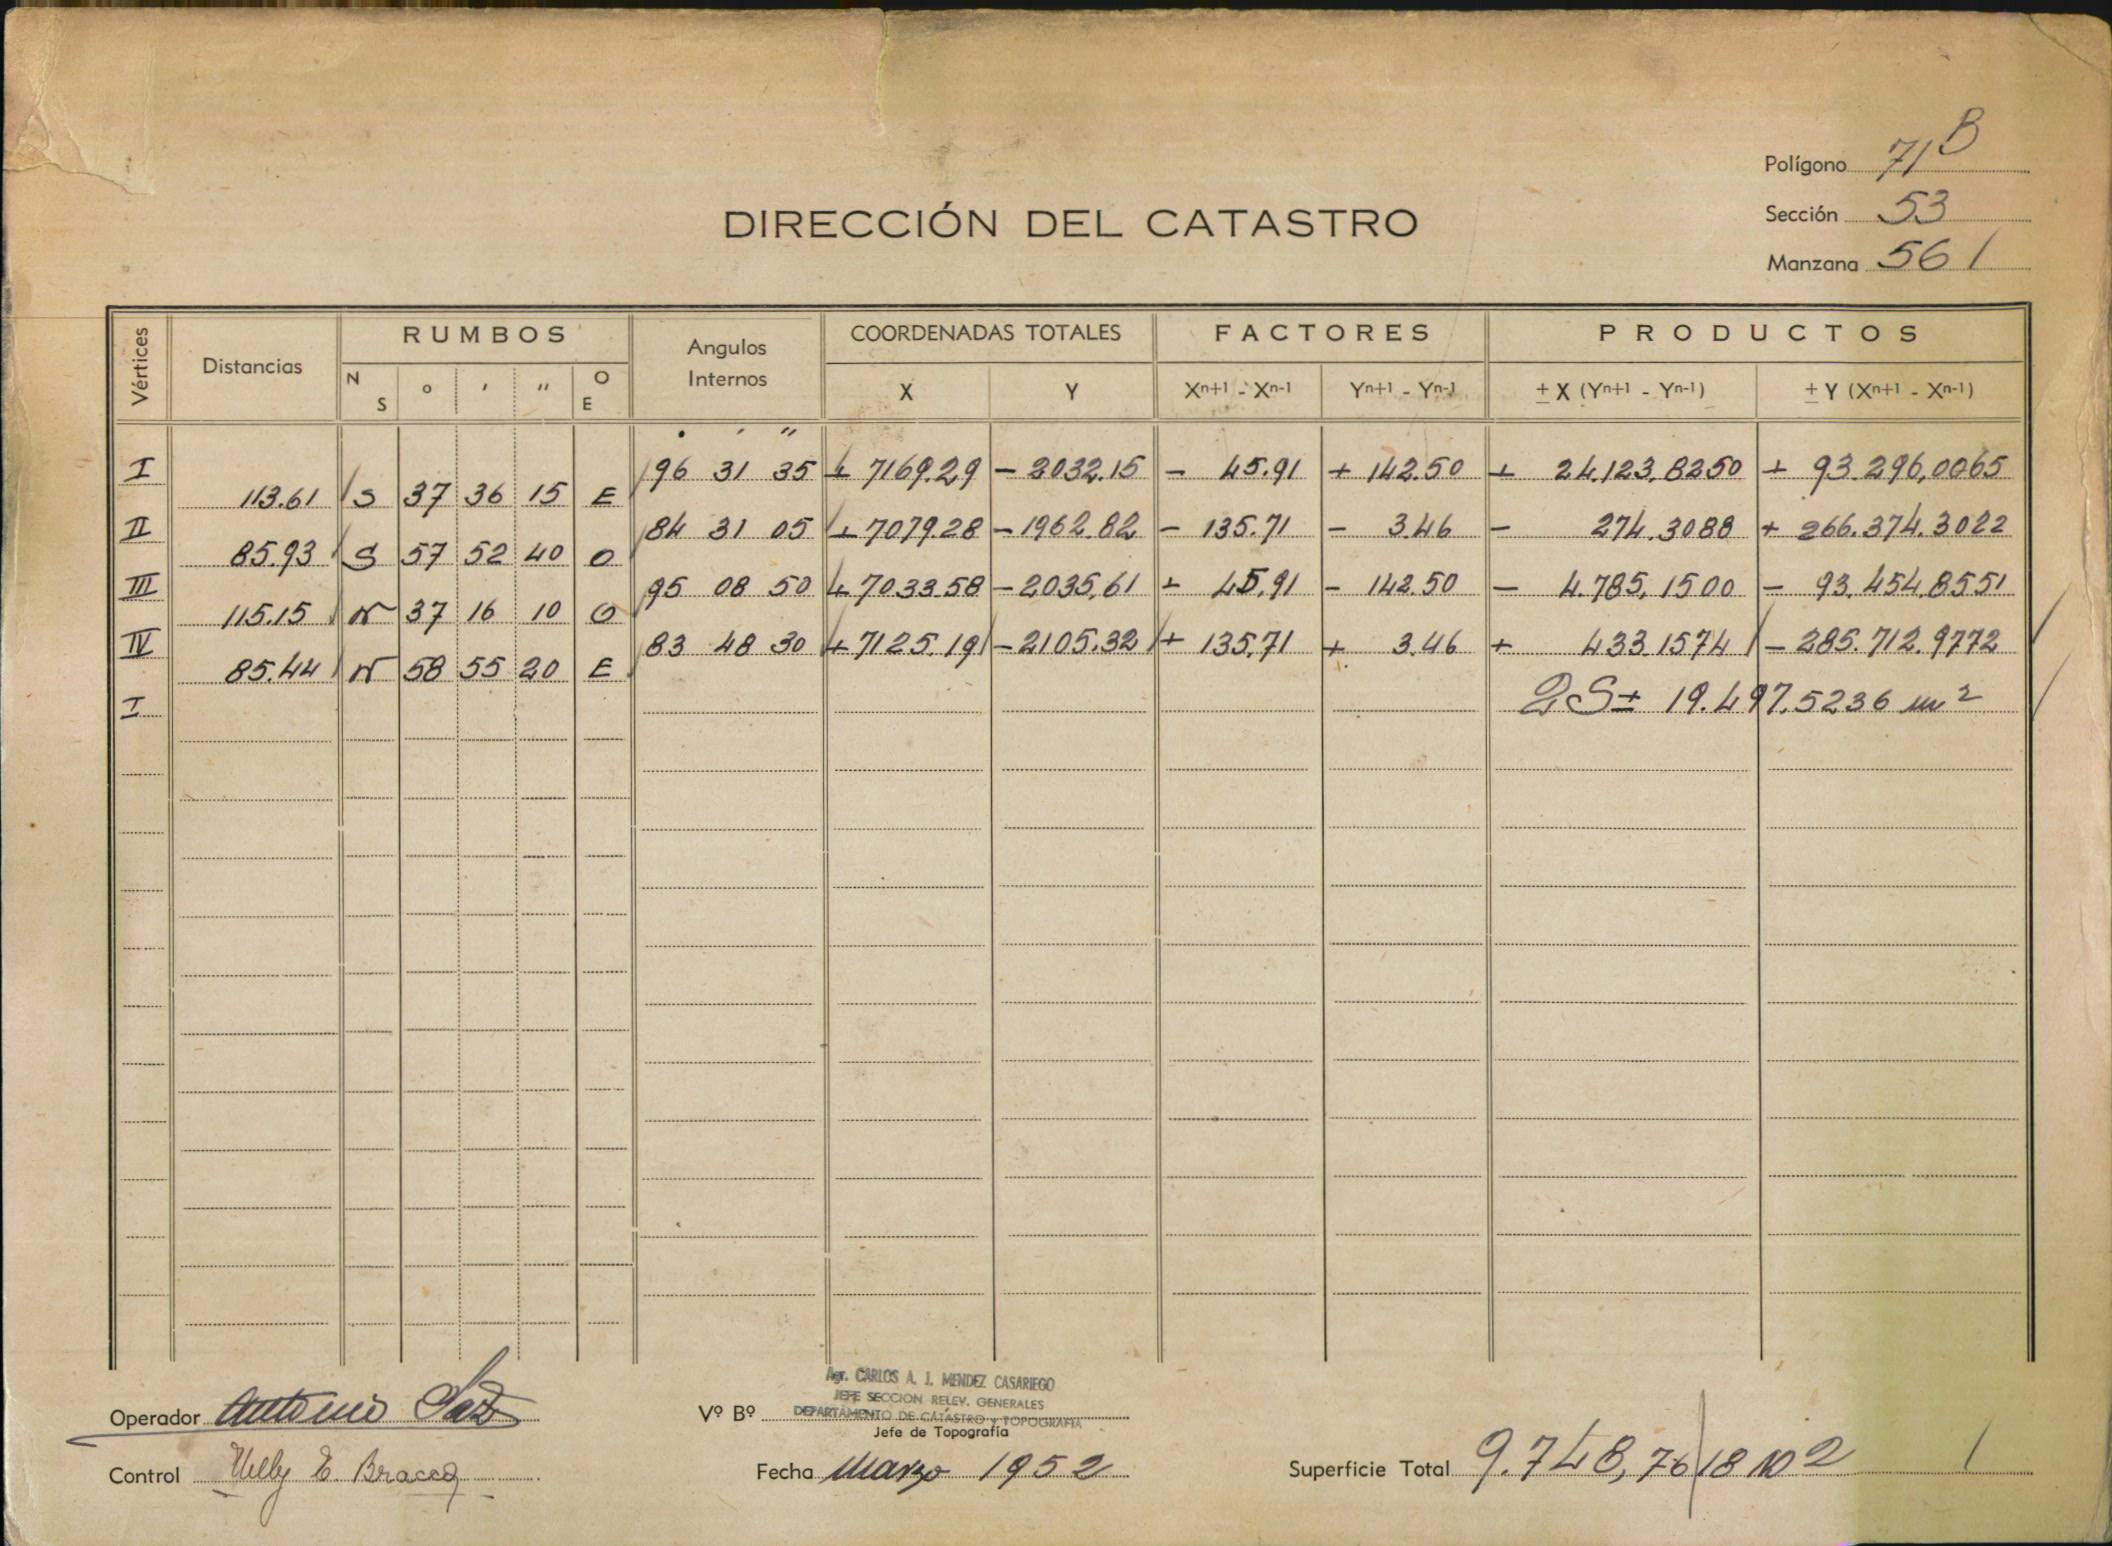 Polígono 71 B
Sección 53
DIRECCIÓN DEL CATASTRO
Manzana 561
Vértices Distancias RUMBOS Angulos Internos COORDENADAS TOTALES FACTORES PRODUCTOS
N S o ' '' O E X Y Xn+1 - Xn-1 Yn+1 - Yn-1 ± X (Yn+1 - Yn-1) ± Y (Xn+1 - Xn-1)
° ' ''
I 96 31 35 + 7169.29 - 2032.15 - 45.91 + 142.50 + 24.123.8250 + 93.296,0065
113.61 S 37 36 15 E
II 84 31 05 + 7079.28 - 1962.82 - 135.71 - 3.46 - 274.3088 + 266.374.3022
85.93 S 57 52 40 O
III 95 08 50 + 7033.58 - 2035,61 + 45,91 - 142.50 - 4.785,1500 - 93.454.8551
115.15 N 37 16 10 O
IV 83 48 30 + 7125.19 - 2105.32 + 135,71 + 3.46 + 433.1574 - 285.712.9772
85.44 N 58 55 20 E
I 2S± 19.497,5236 m2
Agr. CARLOS A. J. MENDEZ CASARIEGO
JEFE SECCION RELEV. GENERALES
Operador Antonio
Vº Bº DEPARTAMENTO DE CATASTRO y TOPOGRAFIA
Jefe de Topografía
Control Nelly E. Bracco
Fecha Marzo 1952
Superficie Total 9.748,76/18 m2